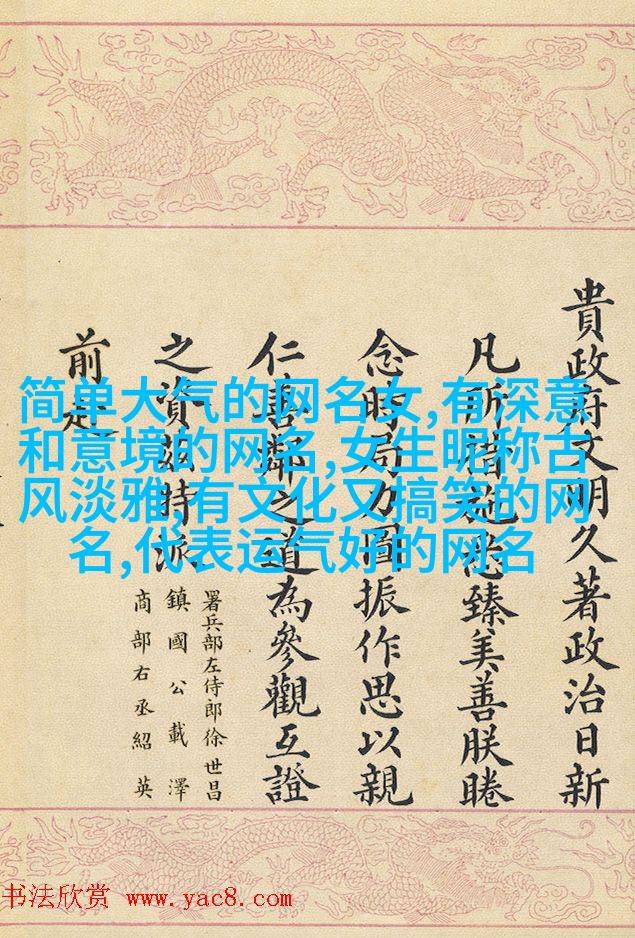 简单大气的网名女,有深意
和意境的网名,女生昵称古
风淡雅,有文化又搞笑的网
名,代表运气好的网名
貴政府文明久著政治日新
凡所措施悉臻美善朕睠
念時局力圖振作思以親
仁善鄰之道為參觀互證
之資茲特派
署兵部左侍郎徐世昌
鎮國公載澤
商部右丞紹英
前赴
书法欣赏 www.yac8.com